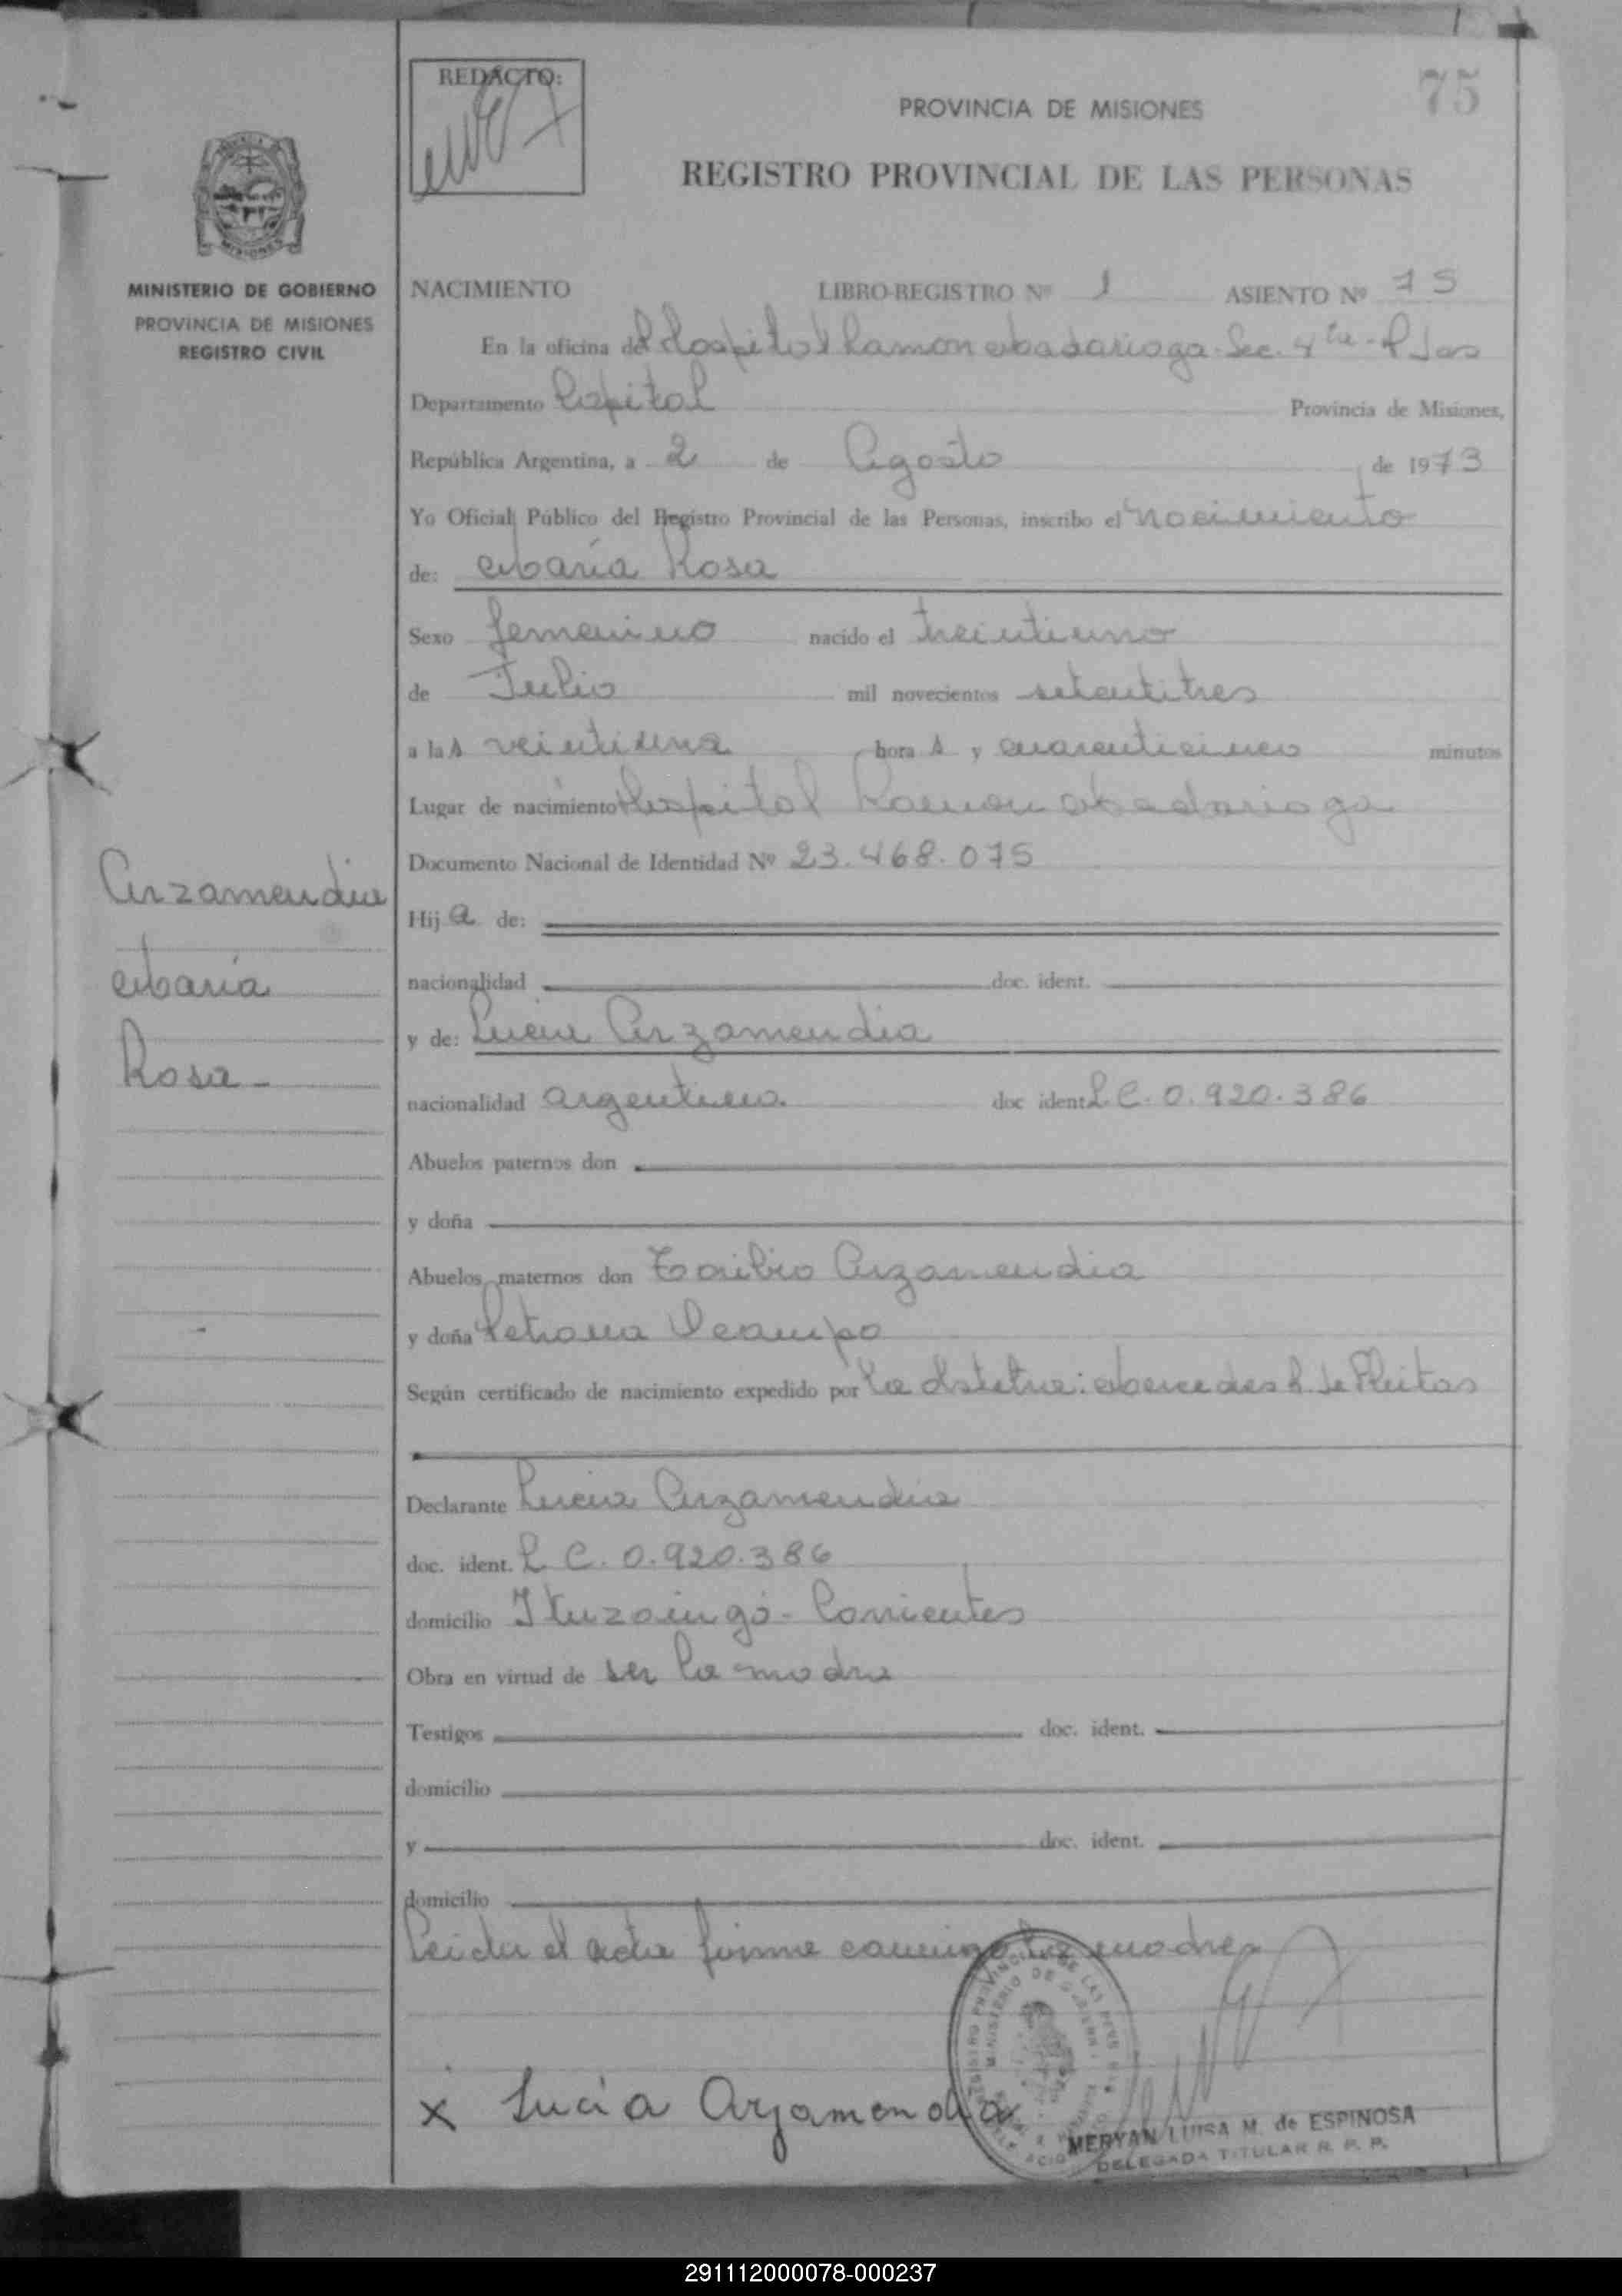 75
REDACTO:
PROVINCIA DE MISIONES
REGISTRO PROVINCIAL DE LAS PERSONAS
MISIONES
MINISTERIO DE GOBIERNO
PROVINCIA DE MISIONES
REGISTRO CIVIL
NACIMIENTO LIBRO-REGISTRO Nº 1 ASIENTO Nº 75
En la oficina del Hospital Ramon Madariaga - Sec. 4ta - Pdas
Departamento Capital Provincia de Misiones,
República Argentina, a 2 de Agosto de 1973
Yo Oficial Público del Registro Provincial de las Personas, inscribo el nacimiento
de: María Rosa
Sexo femenino nacido el treintiuno
de Julio mil novecientos setentitres
a las veintiuna horas y cuarenticinco minutos
Lugar de nacimiento Hospital Ramon Madariaga
Documento Nacional de Identidad Nº 23.468.075
Hija de:
nacionalidad doc. ident.
y de: Lucia Arzamendia
nacionalidad argentina doc ident L.C. 0.920.386
Abuelos paternos don
y doña
Abuelos maternos don Toribio Arzamendia
y doña Petrona Ocampo
Según certificado de nacimiento expedido por la Obstetra: Mercedes R. de Fleitas
Declarante Lucia Arzamendia
doc. ident. L.C. 0.920.386
domicilio Ituzaingó - Corrientes
Obra en virtud de ser la madre
Testigos doc. ident.
domicilio
y doc. ident.
domicilio
Leida el acta firma conmigo la madre
x Lucía Arzamendia
MERYAN LUISA M. de ESPINOSA
DELEGADA TITULAR R. P. P.
Arzamendia
María
Rosa -
291112000078-000237